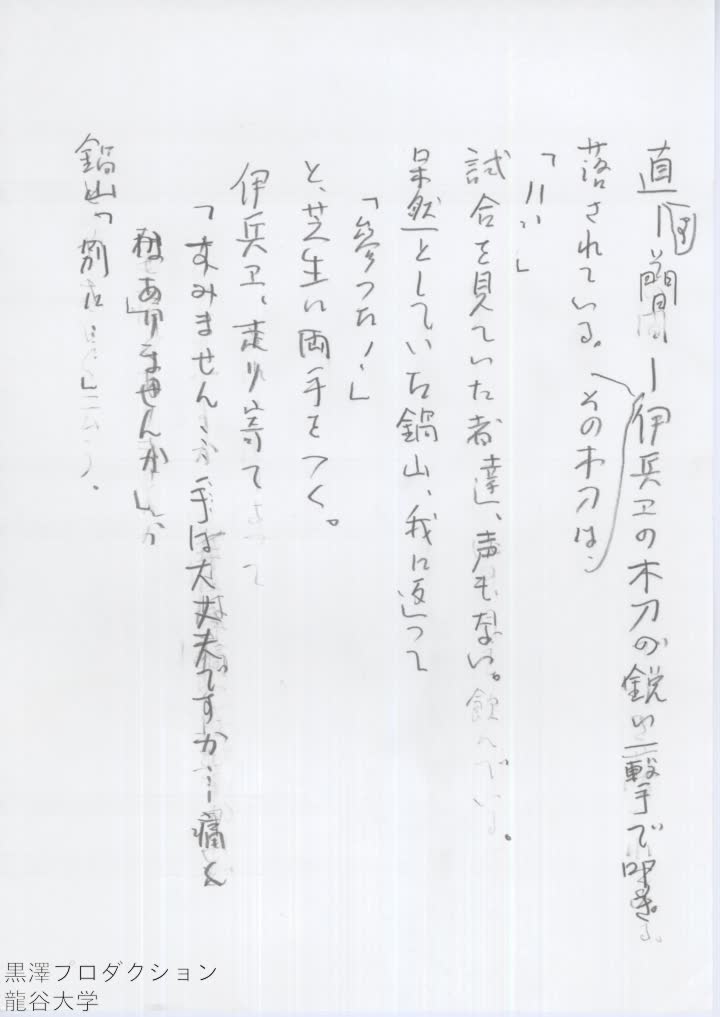 直 間 ー伊兵ヱの木刀の鋭い一撃で叩き
落されている。その木刀は、
試合を見ていた者達、声もない。
呆然としていた鍋山、我に返って
「参つた！」
と、芝生に両手をつく。
伊兵ヱ、走り寄て
「すみません…手は大丈夫ですか…痛く
はありませんか」
鍋山「別に…」
黒澤プロダクション
龍谷大学